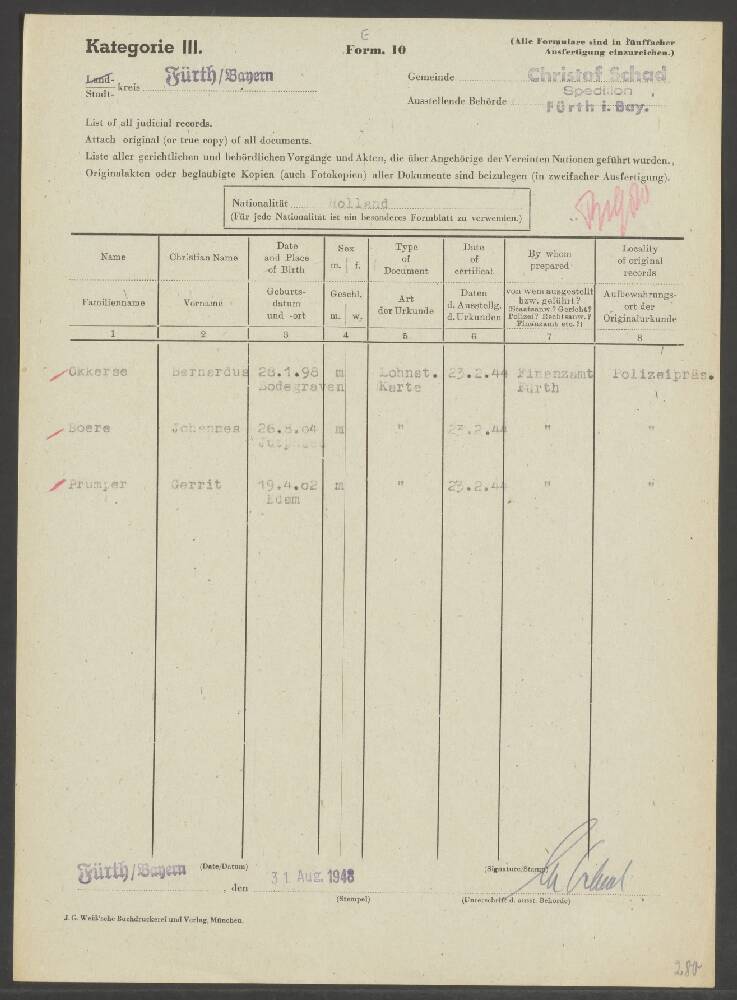 E
Kategorie III.
Form. 10
(Alle Formulare sind in fünffacher
Ausfertigung einzureichen.)
Land-
Stadt- kreis Fürth/Bayern
Gemeinde Christof Schad
Spedition
Ausstellende Behörde Fürth i. Bay.
List of all judicial records.
Attach original (or true copy) of all documents.
Liste aller gerichtlichen und behördlichen Vorgänge und Akten, die über Angehörige der Vereinten Nationen geführt wurden.,
Originalakten oder beglaubigte Kopien (auch Fotokopien) aller Dokumente sind beizulegen (in zweifacher Ausfertigung).
Nationalität Holland
(Für jede Nationalität ist ein besonderes Formblatt zu verwenden.)
Name
Christian Name
Date
and Place
of Birth
Sex
m. f.
Type
of
Document
Date
of
certificat
By whom
prepared
Locality
of original
records
Familienname
Vorname
Geburts-
datum
und -ort
Geschl.
m. w.
Art
der Urkunde
Daten
d. Ausstellg.
d. Urkunden
von wem ausgestellt
bzw. geführt?
(Staatsanw.? Gericht?
Polizei? Rechtsanw.?
Finanzamt etc.?)
Aufbewahrungs-
ort der
Originalurkunde
1 2 3 4 5 6 7 8
Okkerse Bernardus 28.1.98 m Lohnst. 23.2.44 Finanzamt Polizeipräs.
Bodegraven Karte Fürth
Boere Johannes 26.8.04 m " 23.2.44 " "
Prumper Gerrit 19.4.02 m " 23.2.44 " "
Edem
Fürth/Bayern
(Date/Datum)
, den 31. Aug. 1948
(Signature/Stamp)
(Stempel)
(Unterschrift d. ausst. Behörde)
J. G. Weiß'sche Buchdruckerei und Verlag, München.
280